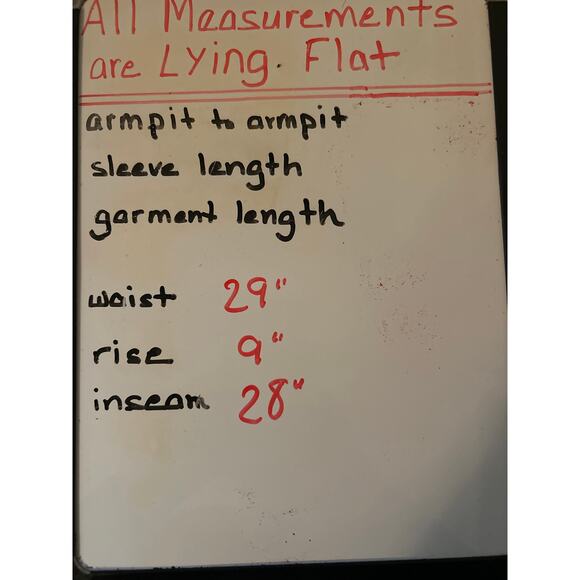 All Measurements
are Lying. Flat
armpit to armpit
sleeve length
garment length
waist 29"
rise 9"
inseam 28"